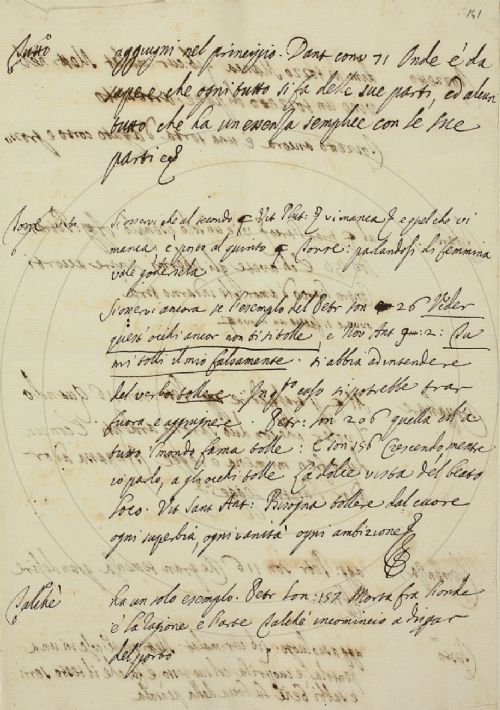 141
Tutto aggiugni nel principio. Dant conv 71 Onde è da
sapere, che ogni tutto si fa delle sue parti, ed alcun
tutto che ha un essenza semplice con le sue
parti
Torre verbo Si osservi che al secondo Vit Plut: vi manca e quel che vi
manca è posto al quinto Torre: parlandosi di femmina
vale godersela
Si osservi ancora se l'esempio del Petr son 26 Veder
quest' occhi ancor non ti si tolle, e Nov. Ant. 2: Tu
mi tolli il mio falsamente. si abbia ad intendere
del verbo tollere caso si potrebbe trar
fuora e aggiugnere. Petr: son 206 quella ch'a
tutto 'l mondo fama tolle: E son 156 Crescendo mentre
io parlo, agli occhi tolle La dolce vista del beato
loco. Vit Sant Pat: Bisogna tollere dal cuore
ogni superbia, ogni vanità ogni ambizione
Talchè ha un solo esempio. Petr son: 157 Morta fra l'onde
è la ragione e l'arte Talchè incomincio a disperar
del porto